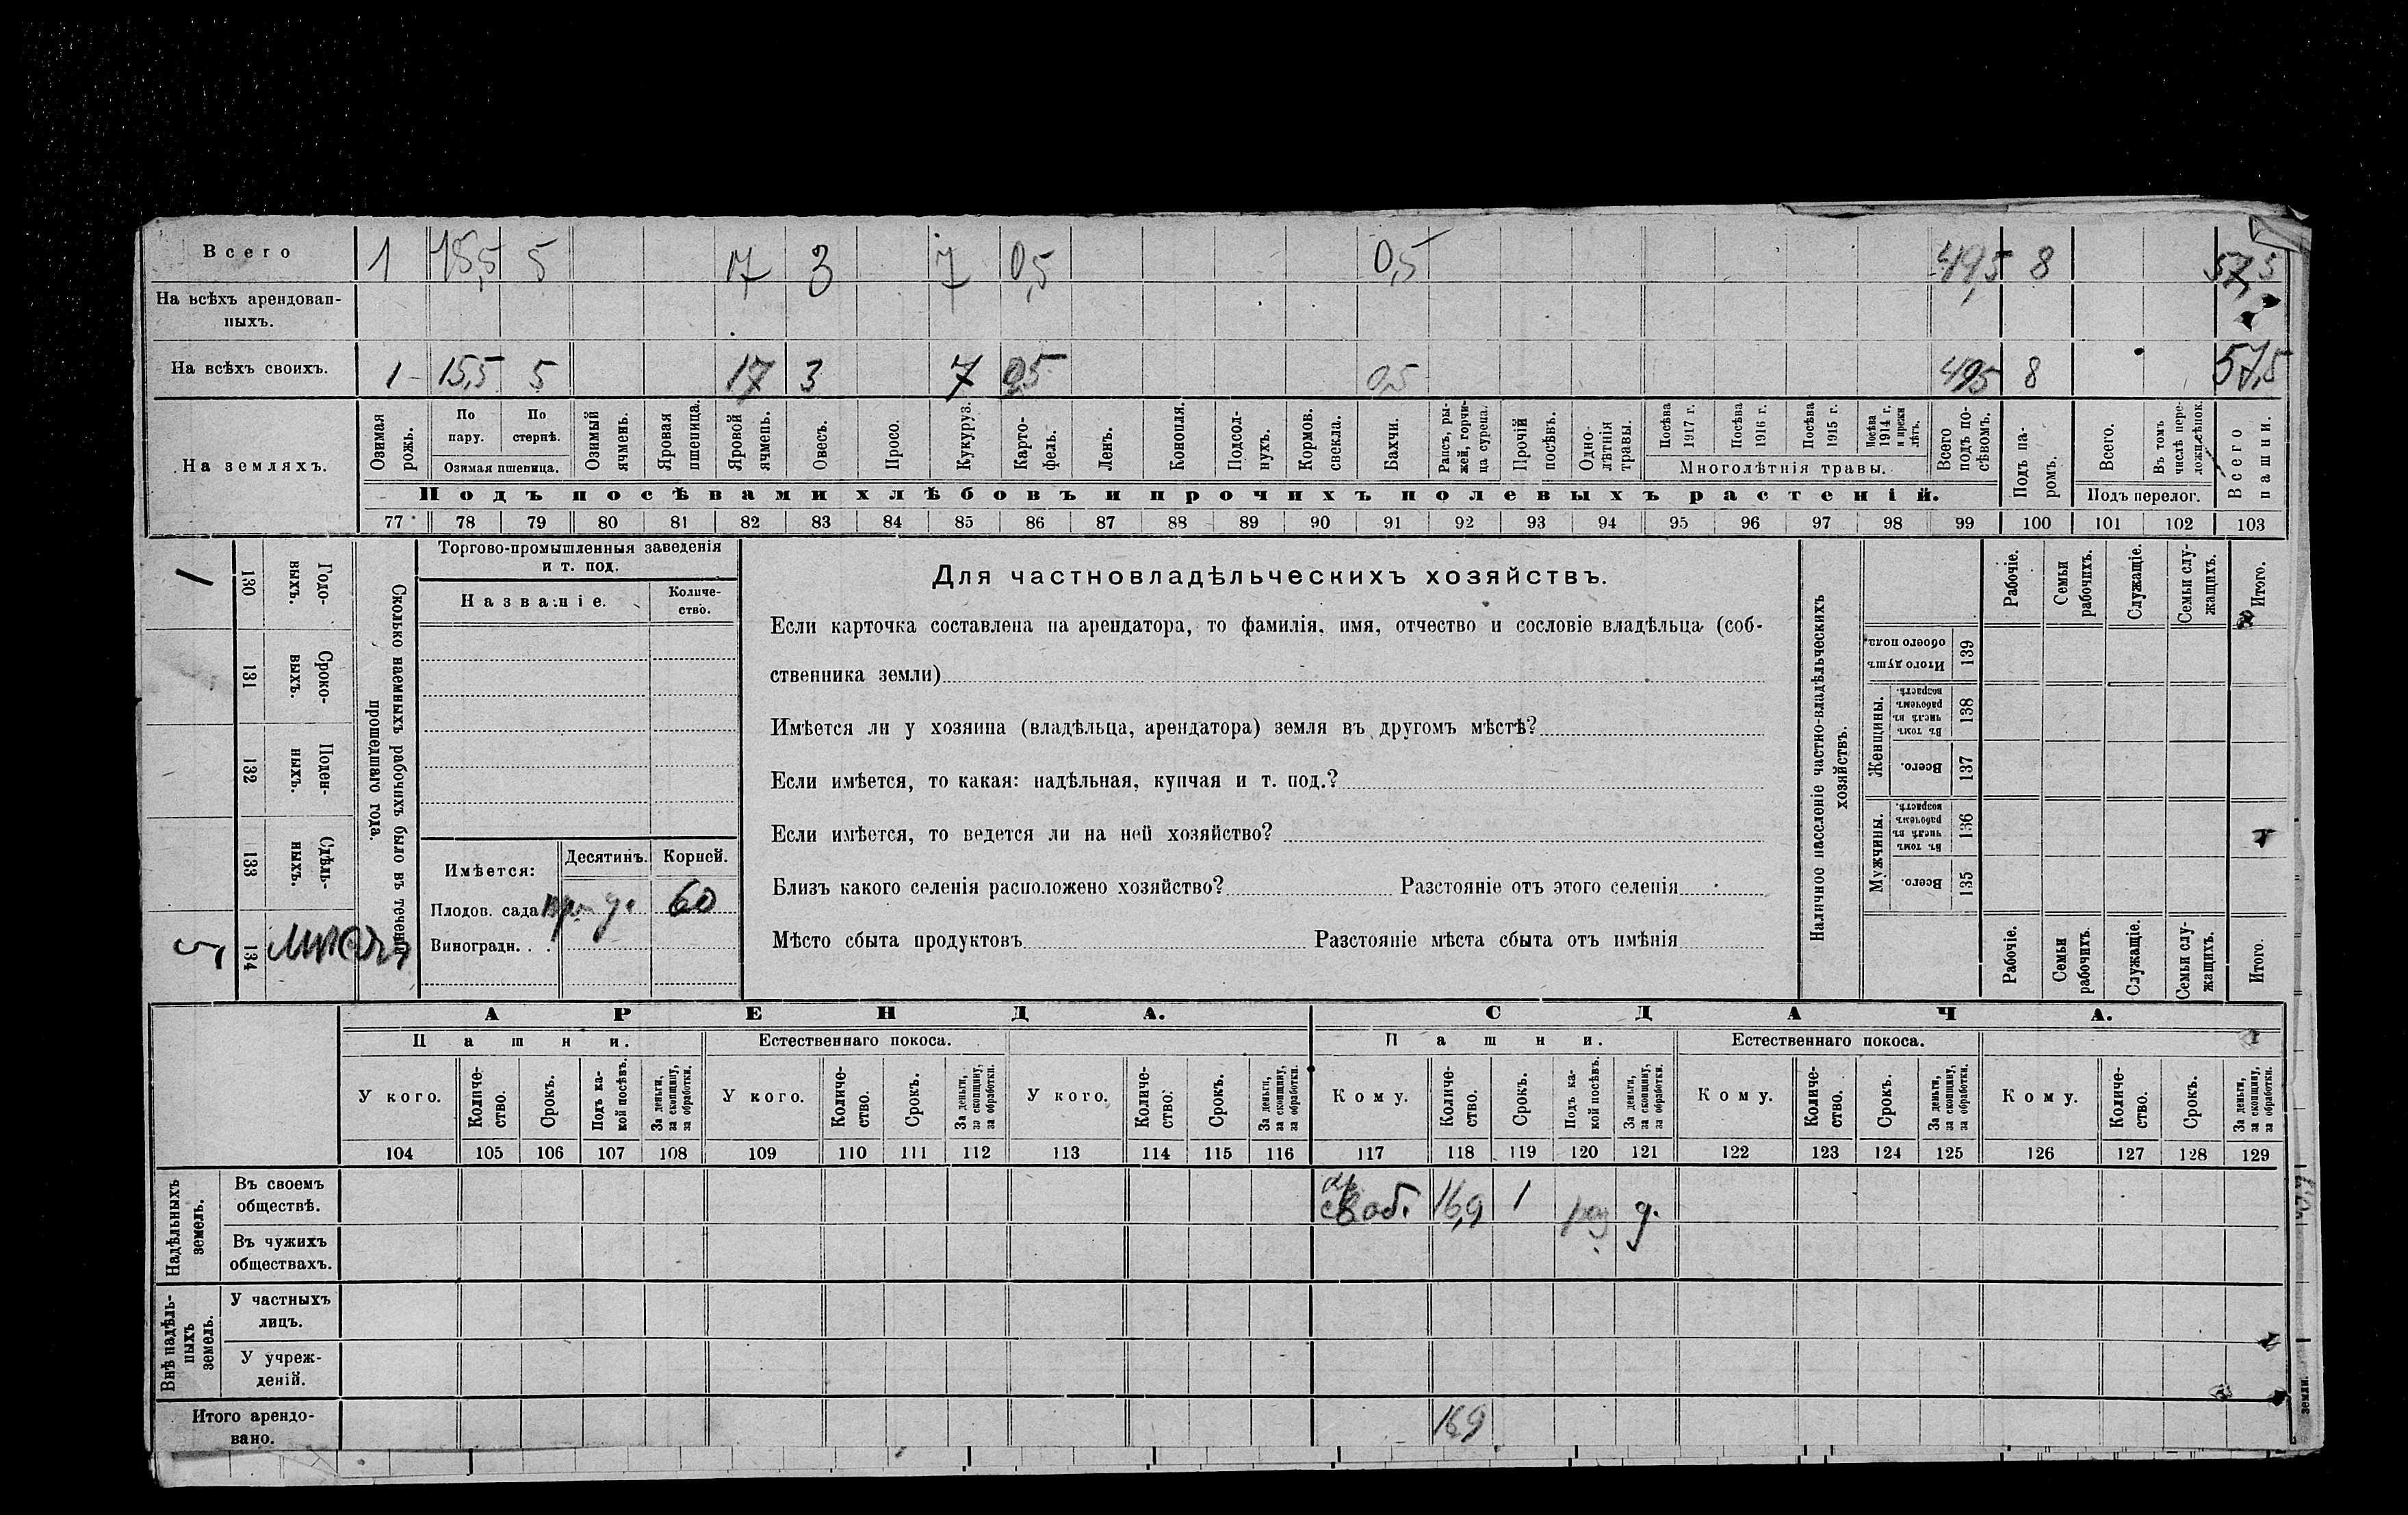 Всего 1 15,5 5 17 3 7 0,5 0,5 49,5 8 57,5
На всѣхъ арендован-
ныхъ.
На всѣхъ своихъ. 1 15,5 5 17 3 7 0,5 0,5 49,5 8 57,5
На земляхъ.
Озимая рожь.
По пару.
По стернѣ.
Озимая пшеница.
Озимый ячмень.
Яровая пшеница.
Яровой ячмень.
Овесъ.
Просо.
Кукуруз.
Карто-фель.
Ленъ.
Конопля.
Подсол-нухъ.
Кормов. свекла.
Бахчи.
Рапсъ, ры-жей, горчи-ца сурепа.
Прочій посѣвъ.
Одно-лѣтнія травы.
Посѣва 1917 г.
Посѣва 1916 г.
Посѣва 1915 г.
Посѣва 1914 г. и прежн лѣтъ.
Многолѣтнія травы.
Всего подъ по-сѣвомъ.
Подъ па-ромъ.
Всего.
Въ томъ числѣ пере-
Подъ перелог.
Всего пашни.
Подъ посѣвами хлѣбовъ и прочихъ полевыхъ растеній.
77 78 79 80 81 82 83 84 85 86 87 88 89 90 91 92 93 94 95 96 97 98 99 100 101 102 103
1 130 Годо-выхъ.
131 Сроко-выхъ.
132 Поден-ныхъ.
133 Сдѣль-ныхъ.
134
Сколько наемныхъ рабочихъ было въ теченіи прошедшаго года.
Торгово-промышленныя заведенія
и т. под.
Названіе. Количе-ство.
Имѣется: Десятинъ. Корней.
Плодов. сада 60
Виноградн. . .
Для частновладѣльческихъ хозяйствъ.
Если карточка составлена на арендатора, то фамилія, имя, отчество и сословіе владѣльца (соб-
ственника земли)
Имѣется ли у хозяина (владѣльца, арендатора) земля въ другомъ мѣстѣ?
Если имѣется, то какая: надѣльная, купчая и т. под.?
Если имѣется, то ведется ли на ней хозяйство?
Близъ какого селенія расположено хозяйство? Разстояніе отъ этого селенія
Мѣсто сбыта продуктовъ Разстояніе мѣста сбыта отъ имѣнія
Наличное населеніе частно-владѣльческихъ хозяйствъ.
Рабочіе.
Семьи рабочихъ.
Служащіе.
Семьи слу-жащихъ.
Итого.
Итого душъ обоего пола 139
Женщины.
Въ томъ числѣ въ рабочемъ возрастѣ. 138
Всего. 137
Мужчины.
Въ томъ числѣ въ рабочемъ возрастѣ. 136
Всего. 135
Рабочіе.
Семьи рабочихъ.
Служащіе.
Семьи слу-жащихъ.
Итого.
АРЕНДА. СДАЧА.
Пашни. Естественнаго покоса. Пашни. Естественнаго покоса.
У кого. Количе-ство. Срокъ. Подъ ка-кой посѣвъ. За деньги, за скопщину, за обработки. У кого. Количе-ство. Срокъ. За деньги, за скопщину, за обработки. У кого. Количе-ство. Срокъ. За деньги, за скопщину, за обработки. Кому. Количе-ство. Срокъ. Подъ ка-кой посѣвъ. За деньги, за скопщину, за обработки. Кому. Количе-ство. Срокъ. За деньги, за скопщину, за обработки. Кому. Количе-ство. Срокъ. За деньги, за скопщину, за обработки.
104 105 106 107 108 109 110 111 112 113 114 115 116 117 118 119 120 121 122 123 124 125 126 127 128 129
Надѣльныхъ земель.
Въ своемъ
обществѣ. 16,9 1 д.
Въ чужихъ
обществахъ.
Внѣ надѣль-ныхъ земель.
У частныхъ
лицъ.
У учреж-
деній.
Итого арендо-
вано. 16,9
земли.